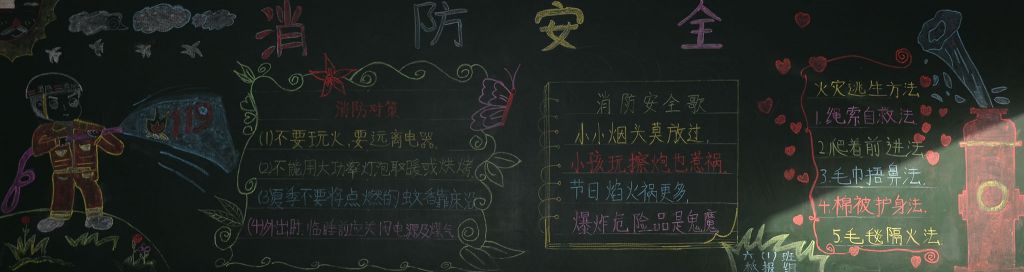 消防安全
消防对策
(1)不要玩火,要远离电器.
(2)不能用大功率灯泡取暖或烘烤
(3)夏季不要将点燃的蚊香靠床沿
(4)外出时.临睡前应关闭电源及煤气
消防安全歌
小小烟头莫放过,
小孩玩擦炮也惹祸,
节日焰火祸更多,
爆炸危险品是鬼魔
火灾逃生方法
1.绳索自救法
2.爬着前进法
3.毛巾捂鼻法.
4.棉被护身法.
5.毛毯隔火法
119
六(1)班